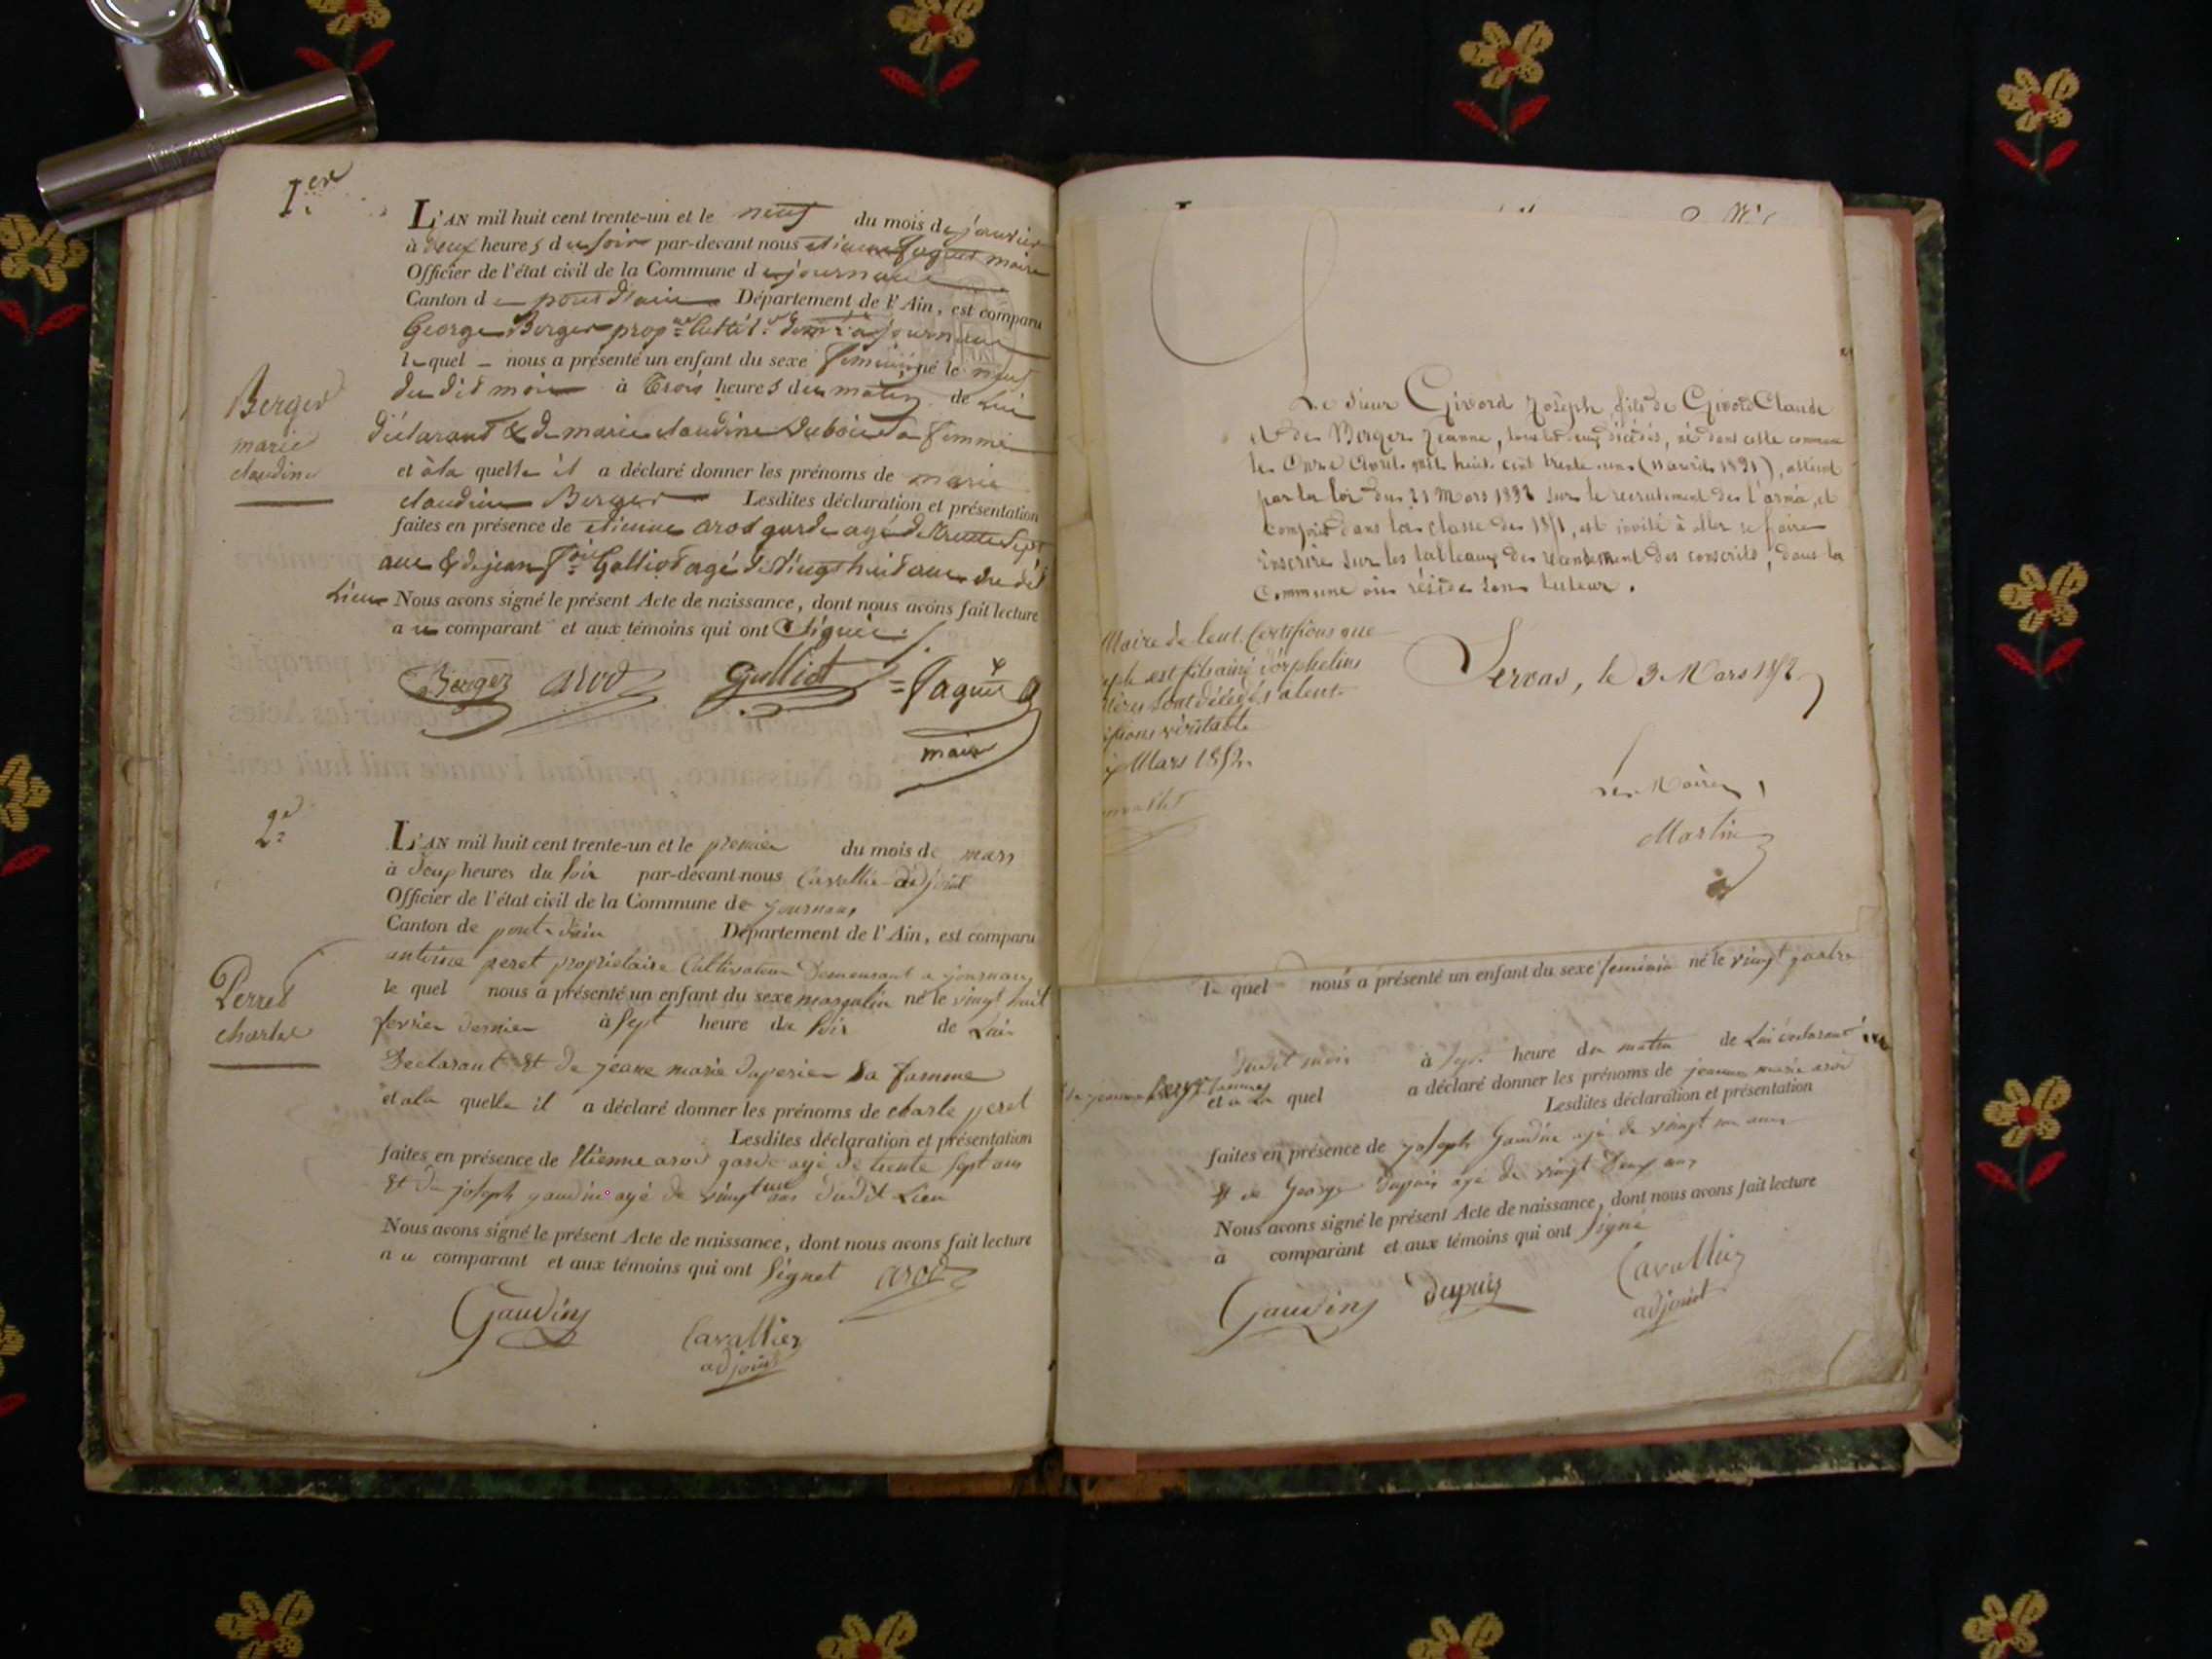 1.ere
L'AN mil huit cent trente-un et le neuf du mois de janvier
à deux heures du soir par-devant nous etienne Paguet maire
Officier de l'état civil de la Commune de journans
Canton de pont d'ain Département de l'Ain, est comparu
George Berger prop.re Cultiv.r dem.t à journans
lequel nous a présenté un enfant du sexe feminin né le neuf
du dit mois à trois heures du matin de Lui
Berger
marie
claudine
déclarant & de marie claudine Dubois sa femme
et à la quelle il a déclaré donner les prénoms de marie
claudine Berger Lesdites déclaration et présentation
faites en présence de etienne arod garde agé de trente sept
ans & de jean Galliot agé de vingt huit ans du dit
Lieu Nous avons signé le présent Acte de naissance, dont nous avons fait lecture
au comparant et aux témoins qui ont signée
Berger arod Galliot Paguet
maire
2.e
L'AN mil huit cent trente-un et le premier du mois de mars
à deux heures du soir par-devant nous Cavallier adjoint
Officier de l'état civil de la Commune de journans
Canton de pont-d'ain Département de l'Ain, est comparu
antoine peret propriétaire Cultivateur Demeurant a journans
le quel nous a présenté un enfant du sexe masqulin né le vingt huit
Perret
charles
fevrier dernier à sept heure du soir de Lui
Declarant Et de jeane marie duperier sa famme
et ala quelle il a déclaré donner les prénoms de charle peret
Lesdites déclaration et présentation
faites en présence de Etienne arod garde agé de trente sept ans
Et de joseph gaudin agé de vingt un ans dudit Lieu
Nous avons signé le présent Acte de naissance, dont nous avons fait lecture
au comparant et aux témoins qui ont signet arod
Gaudin Cavallier
adjoint
Le Sieur Givord Joseph, fils de Givord Claude
et de Berger Jeanne, tous les deux décédés, né dans cette commune
le onze avril mil huit cent trente-un (11 avril 1831), atteint
par la loi du 21 Mars 1832 sur le recrutement de l'armée, et
compris dans la classe de 1851, est invité à aller se faire
inscrire sur les tableaux de recensement des conscrits, dans la
Commune où réside son tuteur.
Servas, le 3 Mars 1852
Le Maire,
Martin
Maire de lent. Certifions que
est fils ainé d'orphelins
sont décédés a lent
véritable
Mars 1852.
le quel nous a présenté un enfant du sexe feminin né le vingt quatre
dudit mois à sept heure du matin de Lui déclarant
et a la quel a déclaré donner les prénoms de jeanne marie arod
Lesdites déclaration et présentation
faites en présence de joseph Gaudin agé de vingt un ans
et de George dupuis agé de vingt Deux ans
Nous avons signé le présent Acte de naissance, dont nous avons fait lecture
à comparant et aux témoins qui ont signé
Gaudin dupuis Cavallier
adjoint